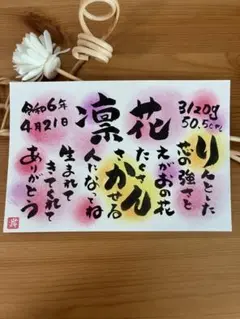 令和6年
4月21日
凛花
3120g
50.5cm
りんとした
芯の強さと
えがおの花
たくさん
さかせる
人になってね
生まれて
きてくれて
ありがとう